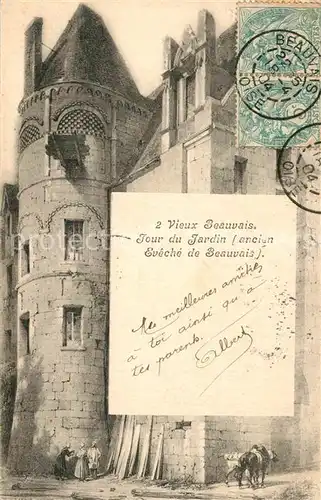 BEAUVAIS
OISE
04
2 Vieux Beauvais.
Tour du Jardin (ancien
Evêché de Beauvais).
Mes meilleures amitiés
à toi ainsi qu'à
tes parents.
Albert